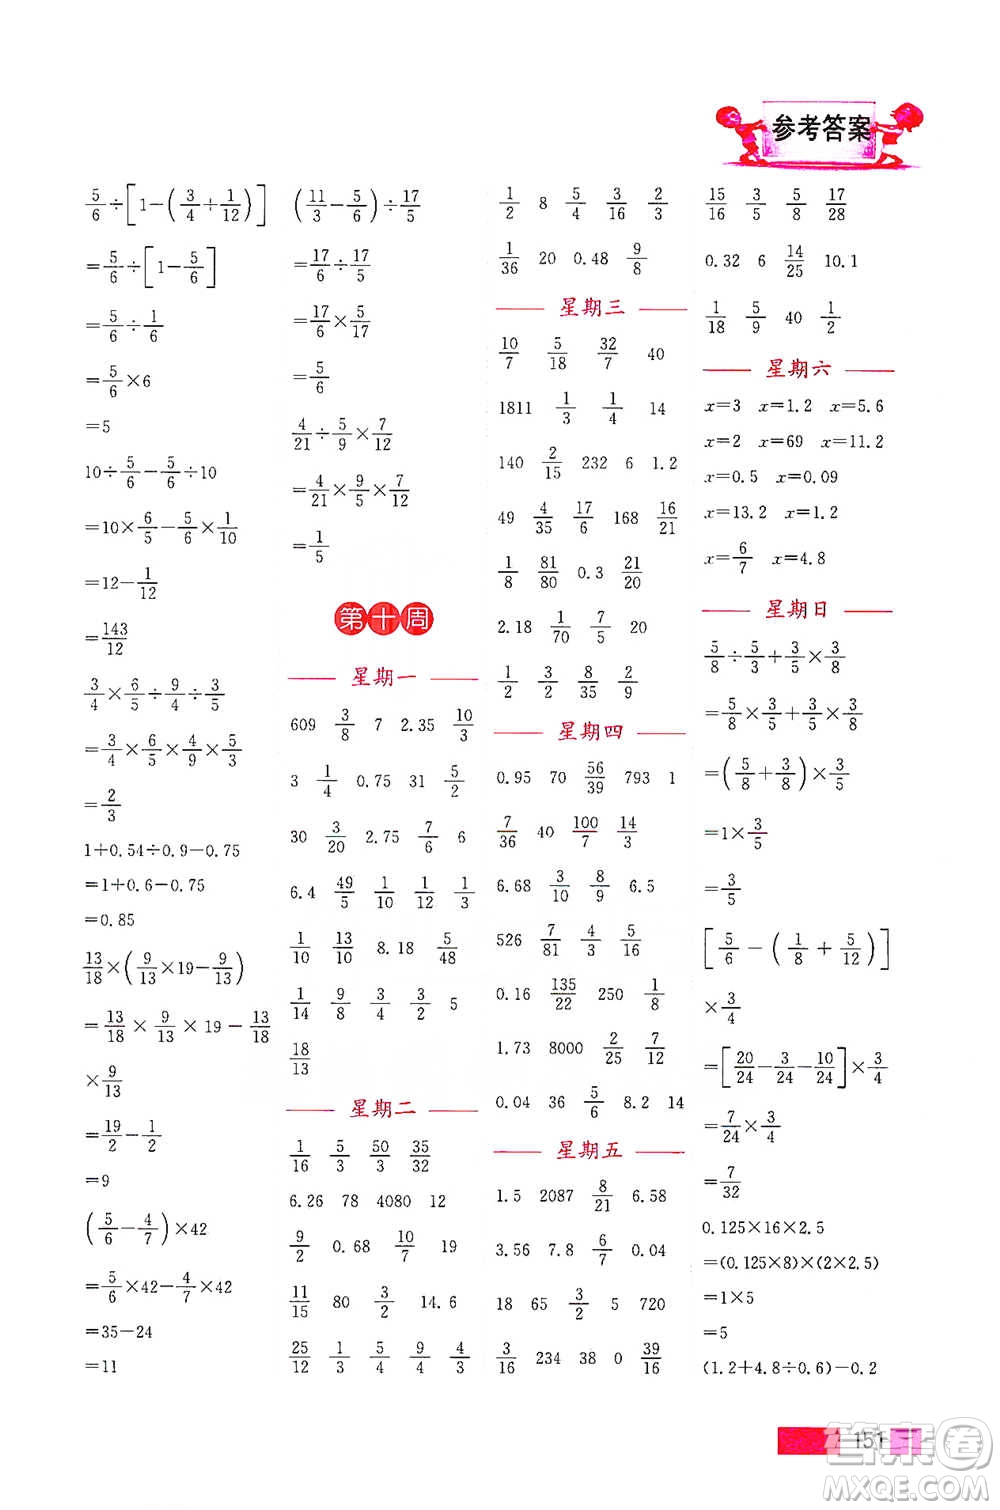 参考答案
5/6÷[1-(3/4+1/12)]
=5/6÷[1-5/6]
=5/6÷1/6
=5/6×6
=5
10÷5/6-5/6÷10
=10×6/5-5/6×1/10
=12-1/12
=143/12
3/4×6/5÷9/4÷3/5
=3/4×6/5×4/9×5/3
=2/3
1+0.54÷0.9-0.75
=1+0.6-0.75
=0.85
13/18×(9/13×19-9/13)
=13/18×9/13×19-13/18
×9/13
=19/2-1/2
=9
(5/6-4/7)×42
=5/6×42-4/7×42
=35-24
=11
(11/3-5/6)÷17/5
=17/6÷17/5
=17/6×5/17
=5/6
4/21÷5/9×7/12
=4/21×9/5×7/12
=1/5
第十周
星期一
609 3/8 7 2.35 10/3
3 1/4 0.75 31 5/2
30 3/20 2.75 7/6 6
6.4 49/5 1/10 1/12 1/12
1/10 13/10 8.18 5/48
1/14 9/8 3/4 3/2 5
18/13
星期二
1/16 5/3 50/3 35/32
6.26 78 4080 12
9/2 0.68 10/7 19
11/15 80 3/2 14.6
25/12 1/3 3/4 9/4 3/2
1/2 8 5/4 3/16 2/3
1/36 20 0.48 9/8
星期三
10/7 5/18 32/7 40
1811 1/3 1/4 14
140 2/15 232 6 1.2
49 4/35 17/6 168 16/21
1/8 81/80 0.3 21/20
2.18 1/70 7/5 20
1/2 3/2 8/35 2/9
星期四
0.95 70 56/39 793 1
7/36 40 100/7 14/3
6.68 3/10 8/9 6.5
526 7/81 4/3 5/16
0.16 135/22 250 1/8
1.73 8000 2/25 7/12
0.04 36 5/6 8.2 14
星期五
1.5 2087 8/21 6.58
3.56 7.8 6/7 0.04
18 65 3/2 5 720
3/16 234 38 0 39/16
15/16 3/5 5/8 17/28
0.32 6 14/25 10.1
1/18 5/9 40 1/2
星期六
x=3 x=1.2 x=5.6
x=2 x=69 x=11.2
x=0.5 x=0.09
x=13.2 x=1.2
x=6/7 x=4.8
星期日
5/8÷5/3+3/5×3/8
=5/8×3/5+3/5×3/8
=(5/8+3/8)×3/5
=1×3/5
=3/5
[5/6-(1/8+5/12)]
×3/4
=[20/24-3/24-10/24]×3/4
=7/24×3/4
=7/32
0.125×16×2.5
=(0.125×8)×(2×2.5)
=1×5
=5
(1.2+4.8÷0.6)-0.2
151
答案圈
MXQE.COM